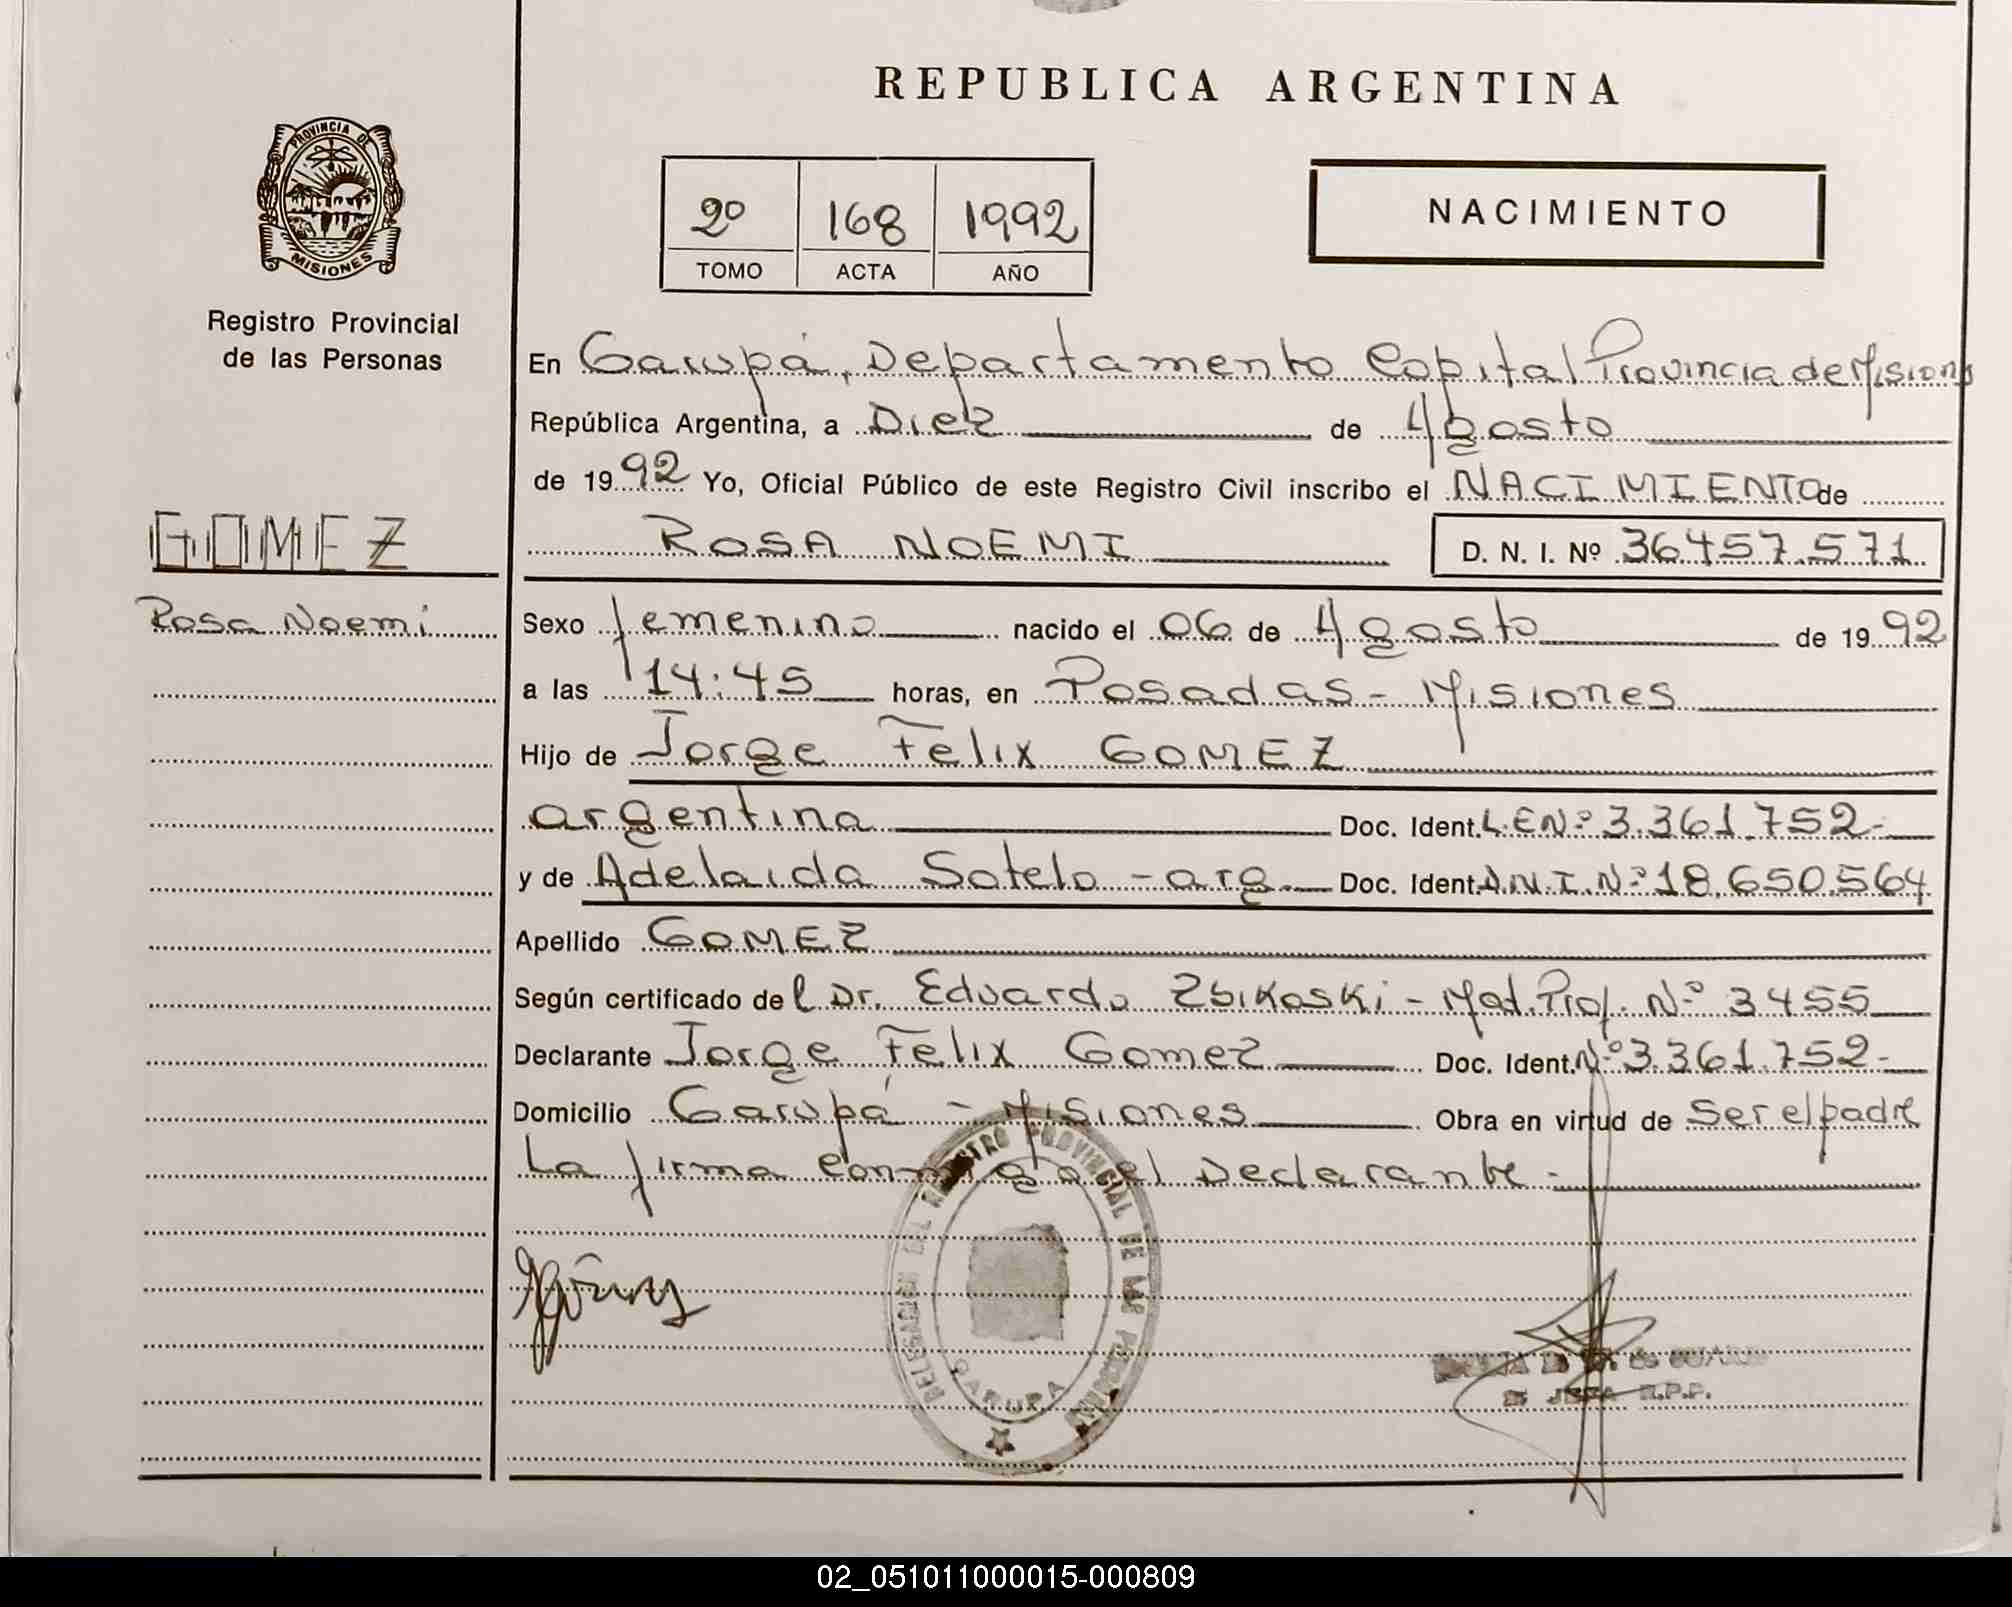 REPUBLICA ARGENTINA
PROVINCIA DE
MISIONES
Registro Provincial
de las Personas
2º 168 1992
TOMO ACTA AÑO
NACIMIENTO
En Garupá, Departamento Capital Provincia de Misiones
República Argentina, a Diez de Agosto
de 1992 Yo, Oficial Público de este Registro Civil inscribo el NACIMIENTO de
GOMEZ
ROSA NOEMI D. N. I. Nº 36.457.571
Rosa Noemi
Sexo femenino nacido el 06 de Agosto de 1992
a las 14:45 horas, en Posadas - Misiones
Hijo de Jorge Felix GOMEZ
argentina Doc. Ident. L.E Nº 3.361.752-
y de Adelaida Sotelo - arg. Doc. Ident. D.N.I. Nº 18.650.564
Apellido GOMEZ
Según certificado del Dr. Eduardo Zbikoski - Mat. Prof. Nº 3455
Declarante Jorge Felix Gomez Doc. Ident. Nº 3.361.752-
Domicilio Garupá - Misiones Obra en virtud de Ser el padre
La firma conmigo el Declarante -
DEL REGISTRO PROVINCIAL DE LAS
GARUPA
JEFA R.P.P.
02_051011000015-000809